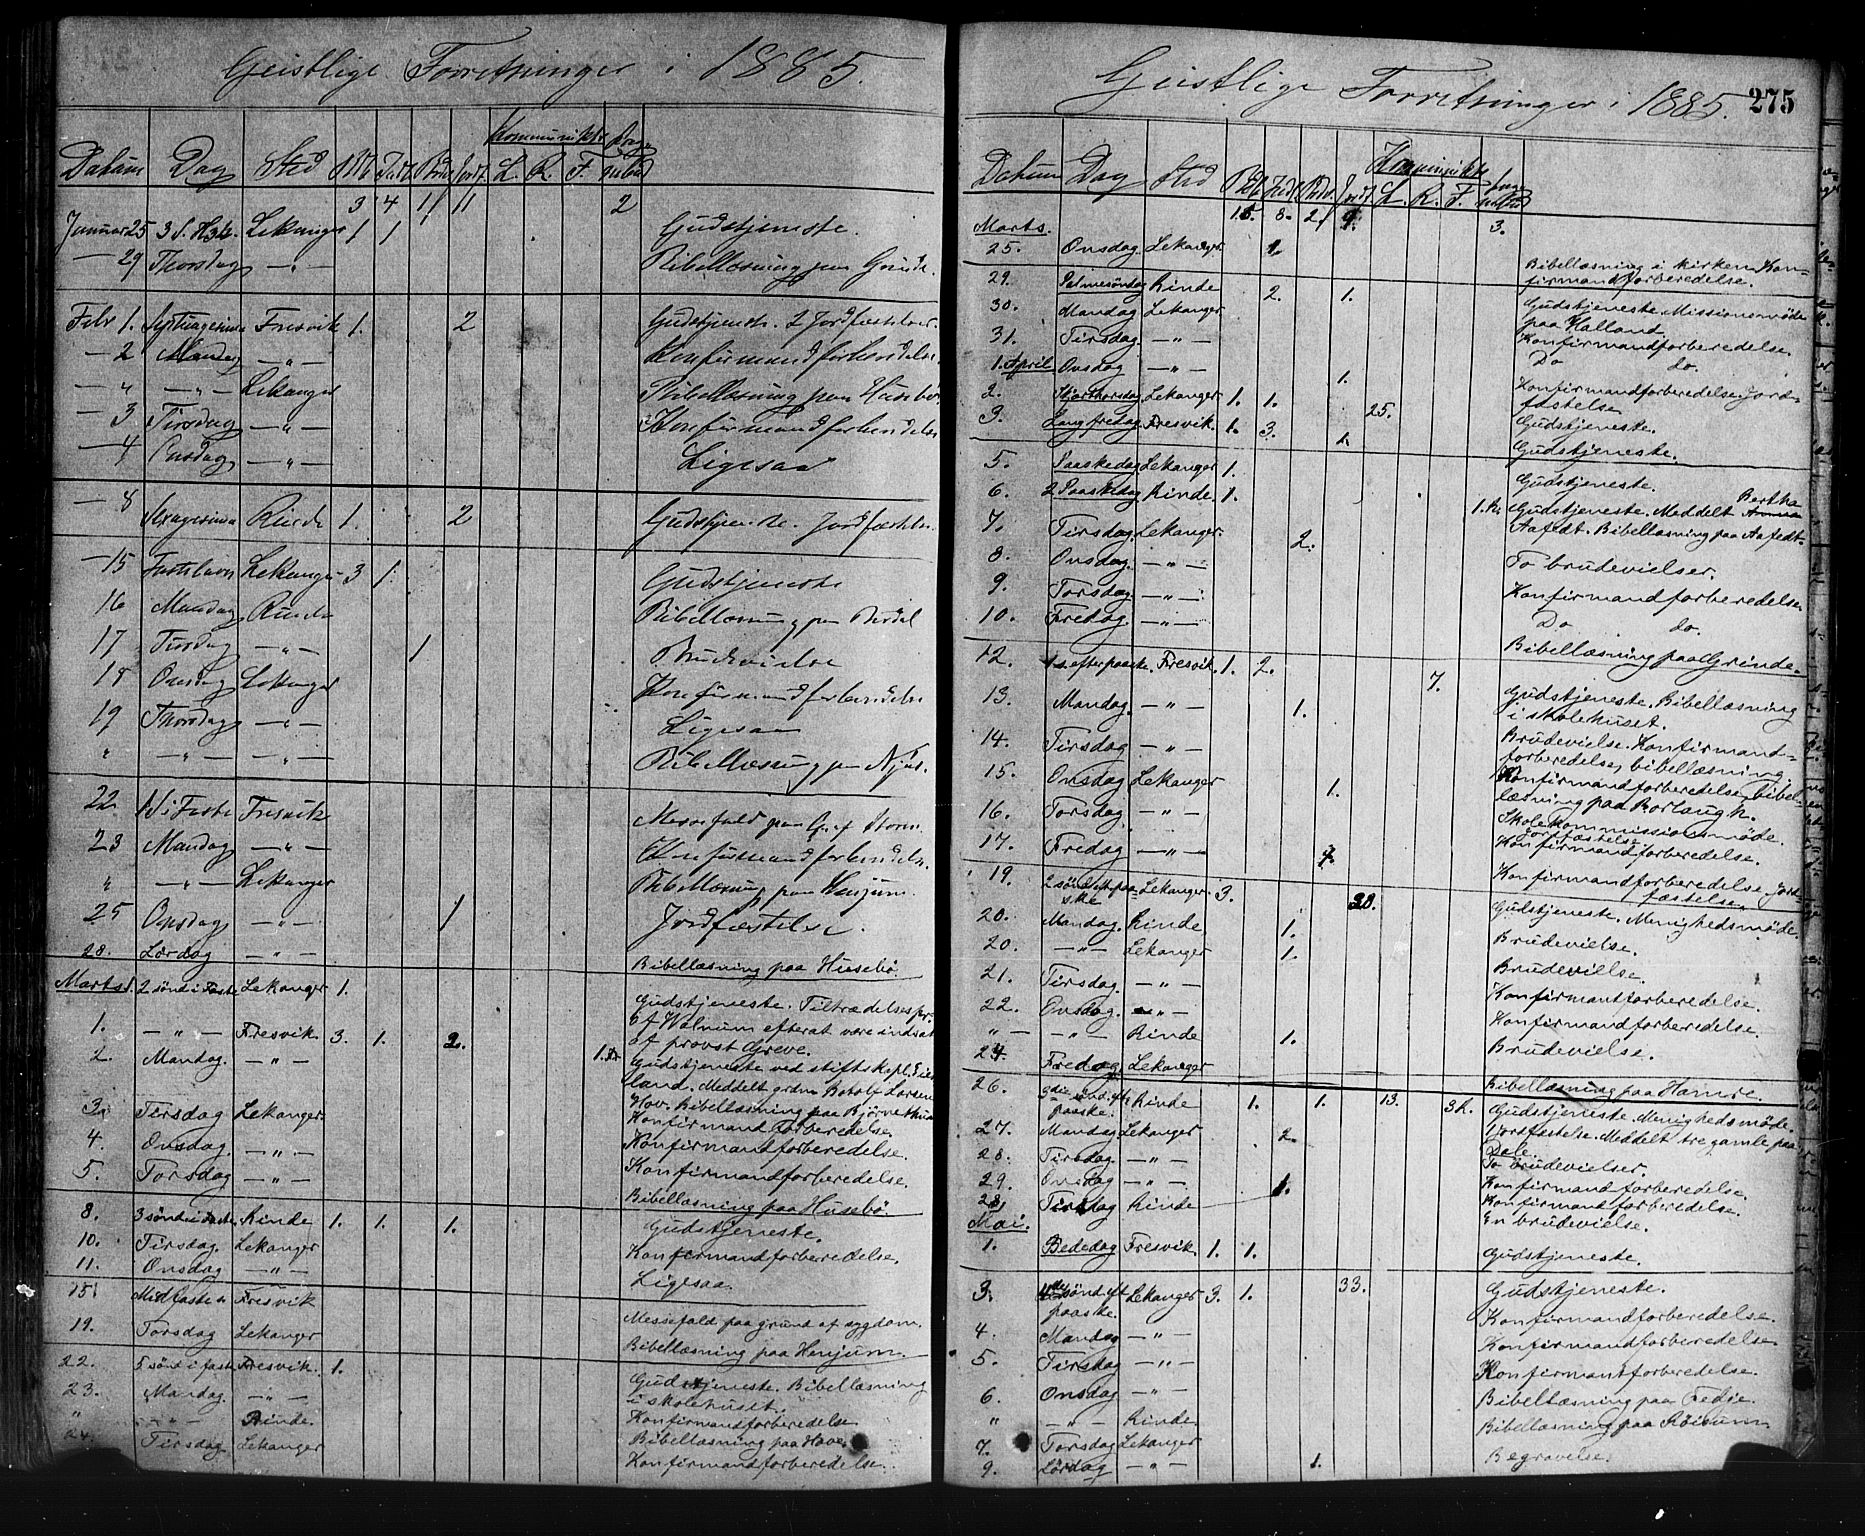 Geistlige Forretninger i 1885.
Kommunikt.
Datum Dag Sted L. R. F.
3 4 1 11 2
Januar 25 3 S. Lekanger 1 1 Gudstjeneste.
— 29 Thorsdag — " — Bibellæsning paa Grinde.
Febr 1. Septuagesima Fresvik 1. 2 Gudstjeneste. 2 Jordfæstelser.
— 2 Mandag — " — Konfirmandforberedelse.
— " — " — Lekanger Bibellæsning paa Husebø
— 3 Tirsdag — " — Konfirmandforberedelse
— 4 Onsdag — " — Ligesaa
— 8 Sexagesima Rinde 1. 2 Gudstjeneste. Jordfæstelse.
— 15 Fastelavn Lekanger 3 1. Gudstjeneste
16 Mandag Rinde Bibellæsning paa
17 Tirsdag — " — 1 Brudevielse
18 Onsdag Lekanger Konfirmandforberedelse
19 Thorsdag — " — Ligesaa
" — " — — " — Bibellæsning paa Njøs.
22 i Faste Fresvik Messefald paa Gr. af Storm.
23 Mandag — " — Konfirmandforberedelse.
" — " — Lekanger Bibellæsning paa Henjum.
25 Onsdag — " — 1 Jordfæstelse.
28. Lørdag — " — Bibellæsning paa Husebø.
Marts 1. 2 sønd i Faste Lekanger 1. Gudstjeneste. Tiltrædelsespr.
af Walnum efterat være indsat
af provst Greve.
1. — " — Fresvik 3. 1. 2. Gudstjeneste ved stiftskapl.
2. Mandag. — " — 1. land. Meddelt Botolf Larsen
Hov. Bibellæsning paa
3. Tirsdag Lekanger. Konfirmand Forberedelse.
4. Onsdag. — " — Konfirmandforberedelse.
5. Torsdag — " — Konfirmandforberedelse.
Bibellæsning paa Husebø.
8. 3 sønd i Faste. Rinde 1. 1. 1. Gudstjeneste.
10. Tirsdag. Lekanger Konfirmandforberedelse.
11. Onsdag — " — Ligesaa.
15. Midfaste Fresvik Messefald paa grund af sygdom.
19. Torsdag Lekanger Bibellæsning paa Henjum.
22. 5 sønd i faste Fresvik. 1. Gudstjeneste. Bibellæsning
i skolehuset.
23. Mandag. — " — Konfirmandforberedelse
" — " — Rinde. Bibellæsning paa Hove.
24. Tirsdag Lekanger Konfirmandforberedelse.
Geistlige Forretninger i 1885. 275
Kommunikt.
Datum Dag Sted L. R. F.
15. 8. 2 9. 3.
Marts.
25. Onsdag. Lekanger. 1. Bibellæsning i kirken. Kon-
firmandforberedelse.
29. Palmesöndag Rinde 2. 1. Gudstjeneste. Missionsmøde
paa Halland.
30. Mandag Lekanger. Konfirmandforberedelse.
31. Tirsdag — " — Do do.
1. April Onsdag — " — 1. Konfirmandforberedelse. Jord-
fæstelse.
2. Skjærthorsdag. Lekanger. 1. 1. 25. Gudstjeneste.
3. Langfredag. Fresvik. 1. 3. 1. Gudstjeneste.
5. Paaskedag Lekanger 1. Gudstjeneste.
6. 2 Paaskedag Rinde. 1. 1. K. Gudstjeneste. Meddelt Bertha
Aafedt. Bibellæsning paa Aafedt.
7. Tirsdag. Lekanger. 2. To brudevielser.
8. Onsdag. — " — Konfirmandforberedelse
9. Torsdag — " — Do do.
10. Fredag. — " — Bibellæsning paa Grinde.
12. 1 s. efter paaske. Fresvik. 1. 2. 7. Gudstjeneste. Bibellæsning
i skolehuset.
13. Mandag. — " — 1. Brudevielse. Konfirmand-
forberedelse, bibellæsning.
14. Tirsdag — " — Konfirmandforberedelse, bibel-
læsning paa Borlaug.
15. Onsdag Lekanger 1. Skolekommissionsmøde.
Jordfæstelse.
16. Torsdag — " — Konfirmandforberedelse.
17. Fredag — " — 1. Konfirmandforberedelse. Jord-
fæstelse.
19. 2 sønd eft paa- Lekanger. 3. 20. Gudstjeneste. Menighedsmøde.
ske
20. Mandag. Rinde 1. Brudevielse.
20. — " — Lekanger 1. Brudevielse.
21. Tirsdag. — " — Konfirmantforberedelse.
22. Onsdag. — " — Konfirmandforberedelse.
" — — " — Rinde 1. Brudevielse.
24. Fredag Lekanger. Bibellæsning paa Hamre.
26. 3die sønd. eft. Rinde 1. 1. 13. 3 K. Gudstjeneste. Menighedsmöde.
paaske. Jordfæstelse. Meddelt tre gamle paa
Dale.
27. Mandag Lekanger 2. To brudevielser.
28. Tirsdag — " — Konfirmandforberedelse.
29. Onsdag — " — Konfirmandforberedelse.
28. Tirsdag Rinde 1. En brudevielse.
Mai.
1. Bededag Fresvik. 1. 1. Gudstjeneste.
3. 4de sønd eft Lekanger 3. 1. 33. Gudstjeneste.
paaske.
4. Mandag — " — Konfirmandforberedelse.
5. Tirsdag — " — Konfirmandforberedelse.
6. Onsdag — " — Konfirmantforberedelse.
Bibellæsning paa Fedje.
" — " — Rinde Bibellæsning paa Röisum.
7. Torsdag Lekanger
9. Lørdag — " — 1. Begravelse.